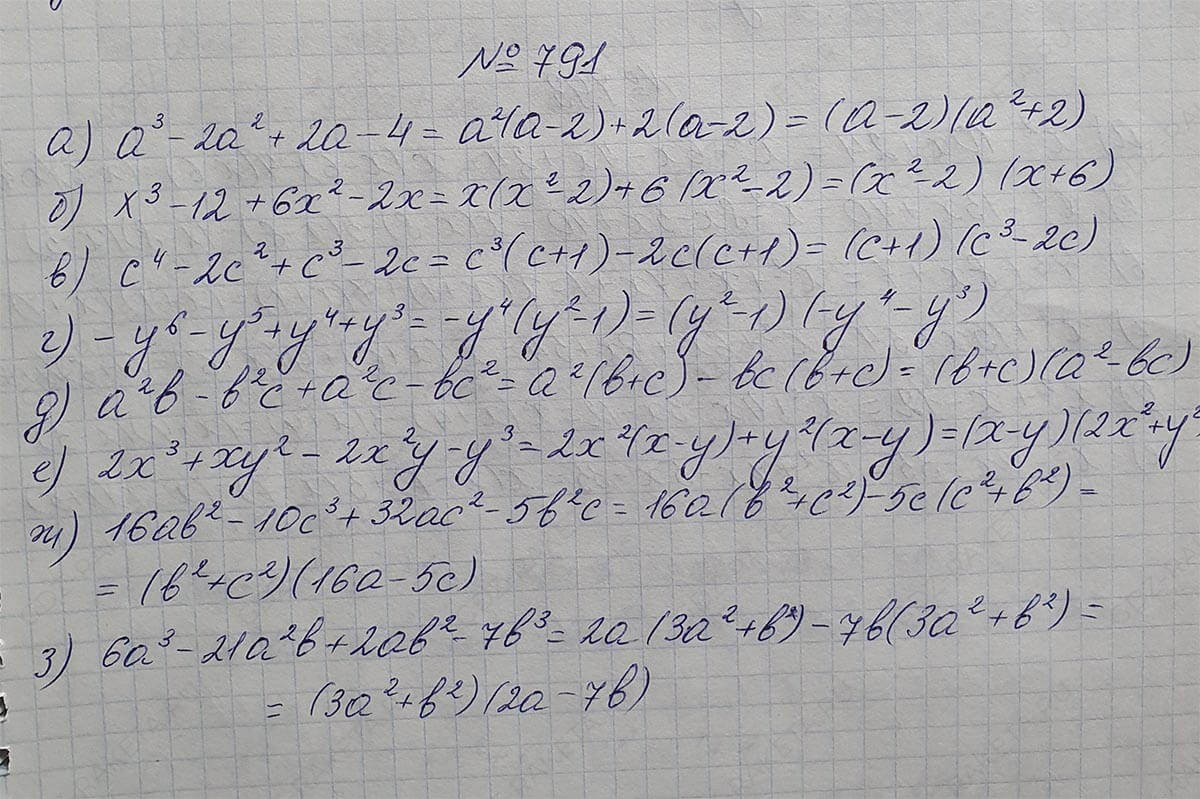 № 791
а) a³ - 2a² + 2a - 4 = a²(a-2) + 2(a-2) = (a-2)(a²+2)
б) x³ - 12 + 6x² - 2x = x(x²-2) + 6(x²-2) = (x²-2) (x+6)
в) c⁴ - 2c² + c³ - 2c = c³(c+1) - 2c(c+1) = (c+1) (c³-2c)
г) -y⁶ - y⁵ + y⁴ + y³ = -y⁴(y²-1) = (y²-1) (-y⁴-y³)
д) a²b - b²c + a²c - bc² = a²(b+c) - bc(b+c) = (b+c)(a²-bc)
е) 2x³ + xy² - 2x²y - y³ = 2x²(x-y) + y²(x-y) = (x-y)(2x²+y²
ж) 16ab² - 10c³ + 32ac² - 5b²c = 16a(b²+c²) - 5c(c²+b²) =
= (b²+c²)(16a-5c)
з) 6a³ - 21a²b + 2ab² - 7b³ = 2a(3a²+b²) - 7b(3a²+b²) =
= (3a²+b²)(2a-7b)